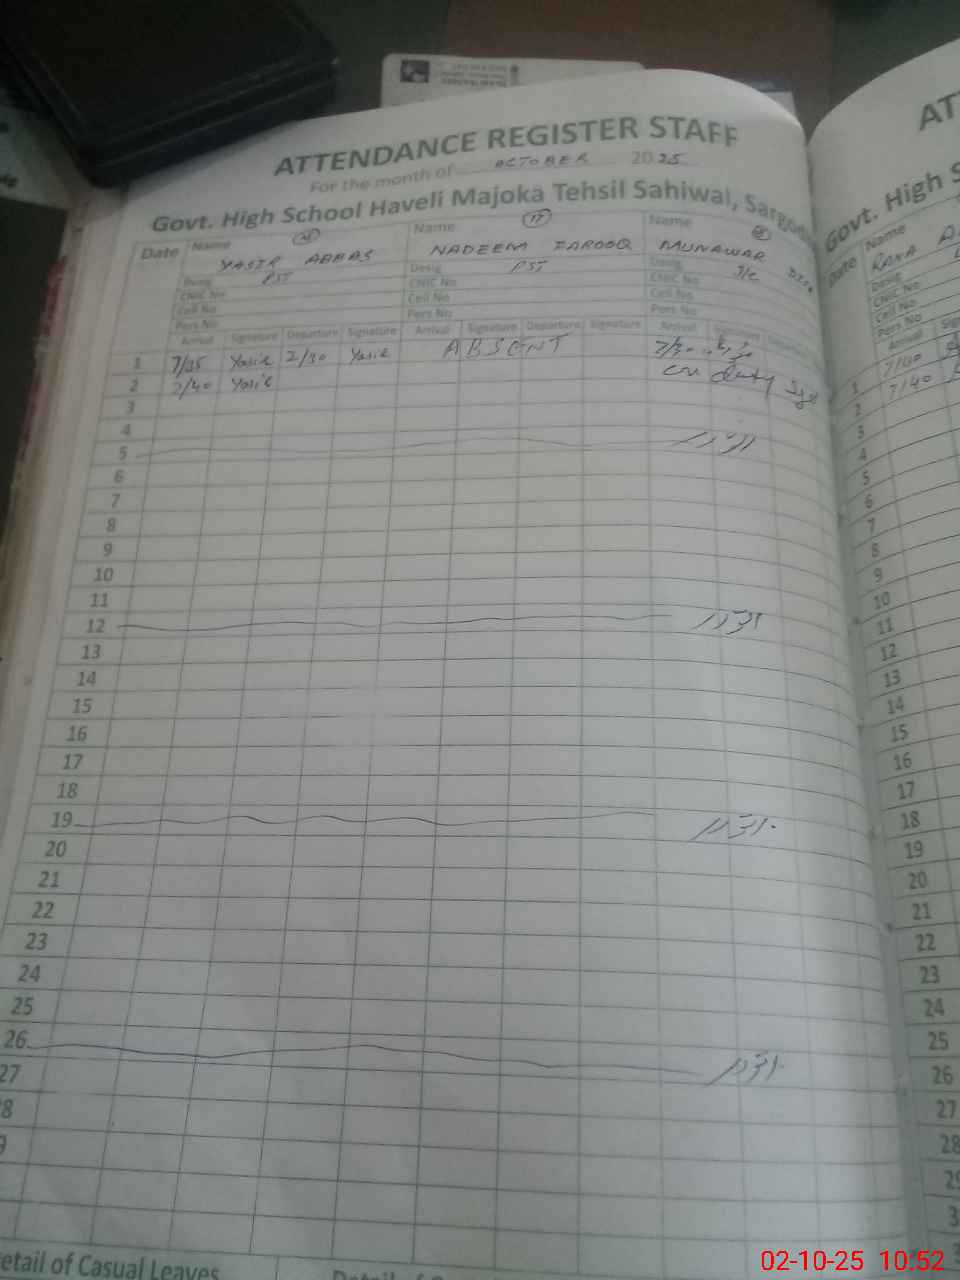 ATTENDANCE REGISTER STAFF
For the month of OCTOBER 2025
Govt. High School Haveli Majoka Tehsil Sahiwal, Sargod
Date Name YASIR ABBAS Name 17 NADEEM FAROOQ Name MUNAWAR
Desig PST Desig PST Desig
CNIC No CNIC No CNIC No
Cell No Cell No Cell No
Pers No Pers No
Arrival Signature Departure Signature Arrival Signature Departure Signature Arrival Signature Departure
1 7/35 Yasir 2/30 Yasir ABSENT
2 7/40 Yasir on duty
3
4
5 اتوار
6
7
8
9
10
11
12 اتوار
13
14
15
16
17
18
19 اتوار
20
21
22
23
24
25
26 اتوار
27
8
9
etail of Casual Leaves
ATT
Govt. High S
Date Name RANA
Desig
CNIC No
Cell No
Pers No
Arrival
1 7/40
2 7/40
3
4
5
6
7
8
9
10
11
12
13
14
15
16
17
18
19
20
21
22
23
24
25
26
27
28
02-10-25 10:52